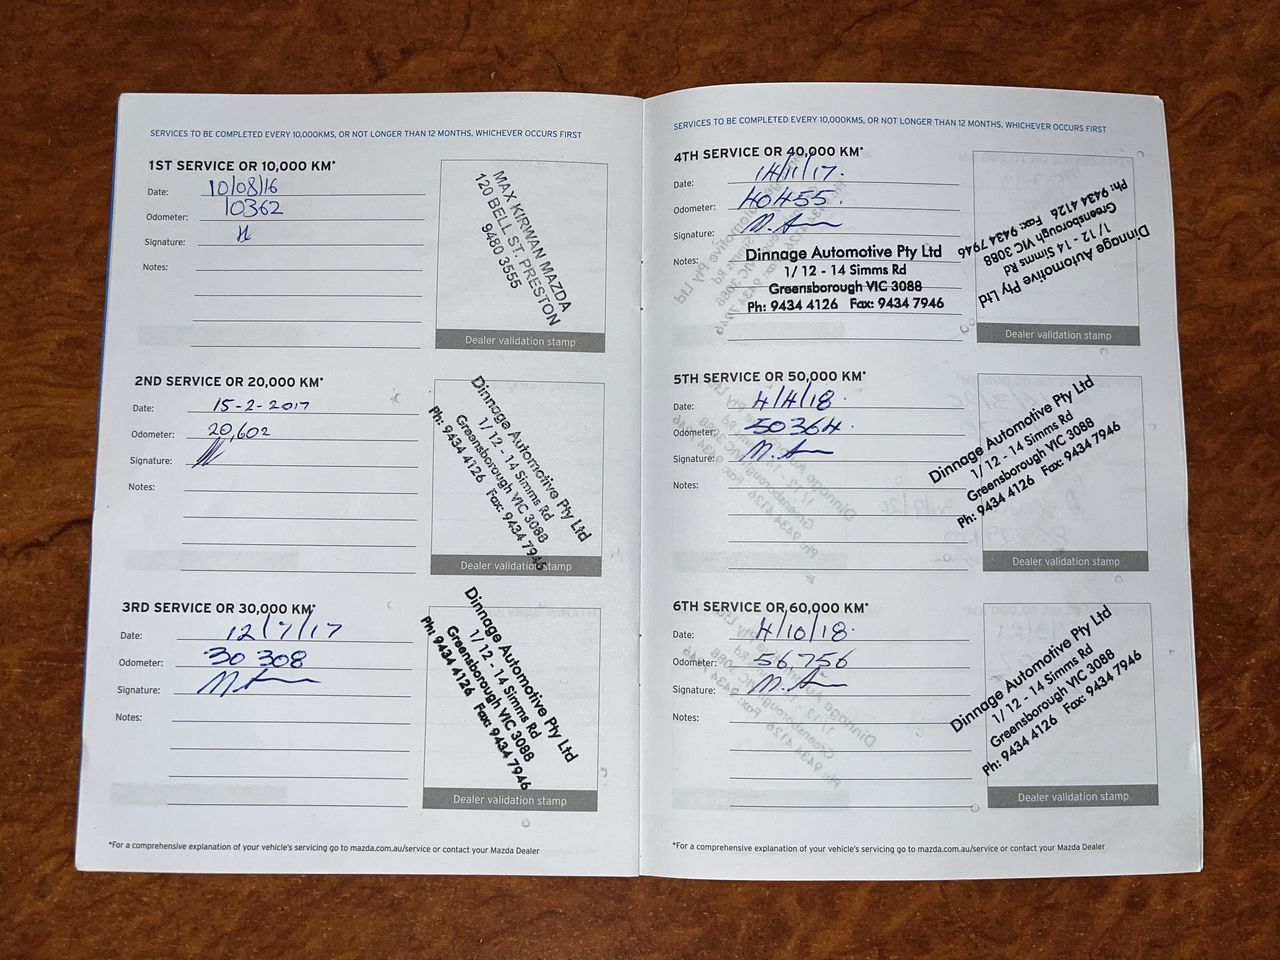 SERVICES TO BE COMPLETED EVERY 10,000KMS, OR NOT LONGER THAN 12 MONTHS, WHICHEVER OCCURS FIRST
1ST SERVICE OR 10,000 KM*
Date: 10/08/16
Odometer: 10362
Signature:
Notes:
MAX KIRWAN MAZDA
120 BELL ST. PRESTON
9480 3555
Dealer validation stamp
2ND SERVICE OR 20,000 KM*
Date: 15-2-2017
Odometer: 20,602
Signature:
Notes:
Dinnage Automotive Pty Ltd
1/ 12 - 14 Simms Rd
Greensborough VIC 3088
Ph: 9434 4126 Fax: 9434 7946
Dealer validation stamp
3RD SERVICE OR 30,000 KM*
Date: 12/7/17
Odometer: 30 308
Signature:
Notes:
Dinnage Automotive Pty Ltd
1/ 12 - 14 Simms Rd
Greensborough VIC 3088
Ph: 9434 4126 Fax: 9434 7946
Dealer validation stamp
*For a comprehensive explanation of your vehicle's servicing go to mazda.com.au/service or contact your Mazda Dealer
SERVICES TO BE COMPLETED EVERY 10,000KMS, OR NOT LONGER THAN 12 MONTHS, WHICHEVER OCCURS FIRST
4TH SERVICE OR 40,000 KM*
Date: 14/11/17.
Odometer: 40455.
Signature:
Notes:
Dinnage Automotive Pty Ltd
1/ 12 - 14 Simms Rd
Greensborough VIC 3088
Ph: 9434 4126 Fax: 9434 7946
Dinnage Automotive Pty Ltd
1/ 12 - 14 Simms Rd
Greensborough VIC 3088
Ph: 9434 4126 Fax: 9434 7946
Dealer validation stamp
5TH SERVICE OR 50,000 KM*
Date: 4/4/18.
Odometer: 50364.
Signature:
Notes:
Dinnage Automotive Pty Ltd
1/ 12 - 14 Simms Rd
Greensborough VIC 3088
Ph: 9434 4126 Fax: 9434 7946
Dealer validation stamp
6TH SERVICE OR 60,000 KM*
Date: 4/10/18.
Odometer: 56,756
Signature:
Notes:
Dinnage Automotive Pty Ltd
1/ 12 - 14 Simms Rd
Greensborough VIC 3088
Ph: 9434 4126 Fax: 9434 7946
Dealer validation stamp
*For a comprehensive explanation of your vehicle's servicing go to mazda.com.au/service or contact your Mazda Dealer